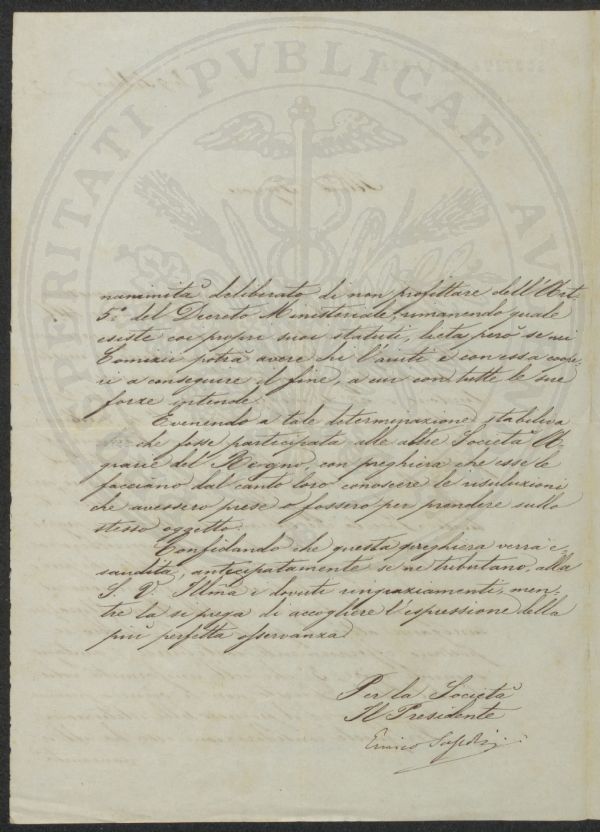 PROSPERITATI PVBLICAE AV
nanimità deliberato di non profittare dell'Art.
5.° del Decreto Ministeriale rimanendo quale
esiste coi proprii suoi statuti, lieta però se nei
Comizii potrà avere chi l'aiuti e con essa coope-
ri a conseguire il fine, a cui con tutte le sue
forze intende.
Evenendo a tale determinazione stabiliva
che fosse partecipata alle altre Società A-
grarie del Regno, con preghiera che esse le
facciano dal canto loro conoscere le risoluzioni
che avessero prese o fossero per prendere sullo
stesso oggetto.
Confidando che questa preghiera verrà e-
saudita, anticipatamente se ne tributano alla
S. V. Illma i dovuti ringraziamenti, men-
tre la si prega di accogliere l'espressione della
più perfetta osservanza.
Per la Società
Il Presidente
Enrico